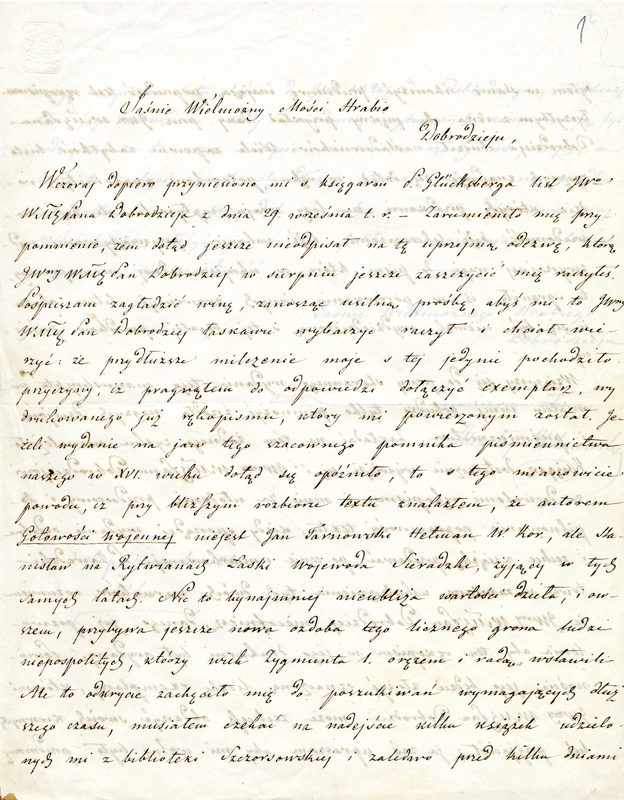 1
Jaśnie Wielmożny Mości Hrabio
Dobrodzieju,
Wczoraj dopiero przyniesiono mi z księgarni P. Glücksberga list JWo
WMę Pana Dobrodzieja z dnia 29 września t. r. — Zarumieniło mię przy
pomnienie, żem dotąd jeszcze nieodpisał na tę uprzejmą odezwę, którą
JWny WMę Pan Dobrodziej w sierpniu jeszcze zaszczycić mię raczyłeś.
Pośpieszam zagładzić winę, zanosząc usilną prośbę, abyś mi to JWny
WMę Pan Dobrodziej łaskawie wybaczyć raczył i chciał wie
rzyć: że przydłuższe milczenie moje z tej jedynie pochodziło
przyczyny, iż pragnąłem do odpowiedzi dołączyć exemplarz, wy
drukowanego już rękopismu, który mi powierzonym został. Je-
żeli wydanie na jaw tego szacownego pomnika piśmiennictwa
naszego w XVI. wieku dotąd się opóźniło, to z tego mianowicie
powodu, iż przy bliższym rozbiorze textu znalazłem, że autorem
Gotowości wojennej niejest Jan Tarnowski Hetman W. Kor., ale Sta-
nisław na Rytwianach Łaski wojewoda Sieradzki, żyjący w tych
samych latach. Nic to bynajmniej nieubliża wartości dzieła, i ow-
szem, przybywa jeszcze nowa ozdoba tego licznego grona ludzi
niepospolitych, którzy wiek Zygmunta I. orężem i radą wsławili
Ale to odkrycie zachęciło mię do poszukiwań wymagających dłuż
szego czasu, musiałem czekać na nadejście kilku książek udzielo-
nych mi z biblioteki Szczorsowskiej i zaledwo przed kilku dniami